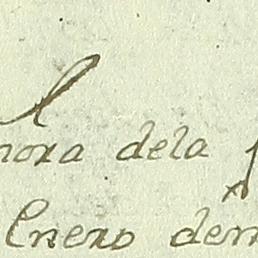 nora dela
Enero de